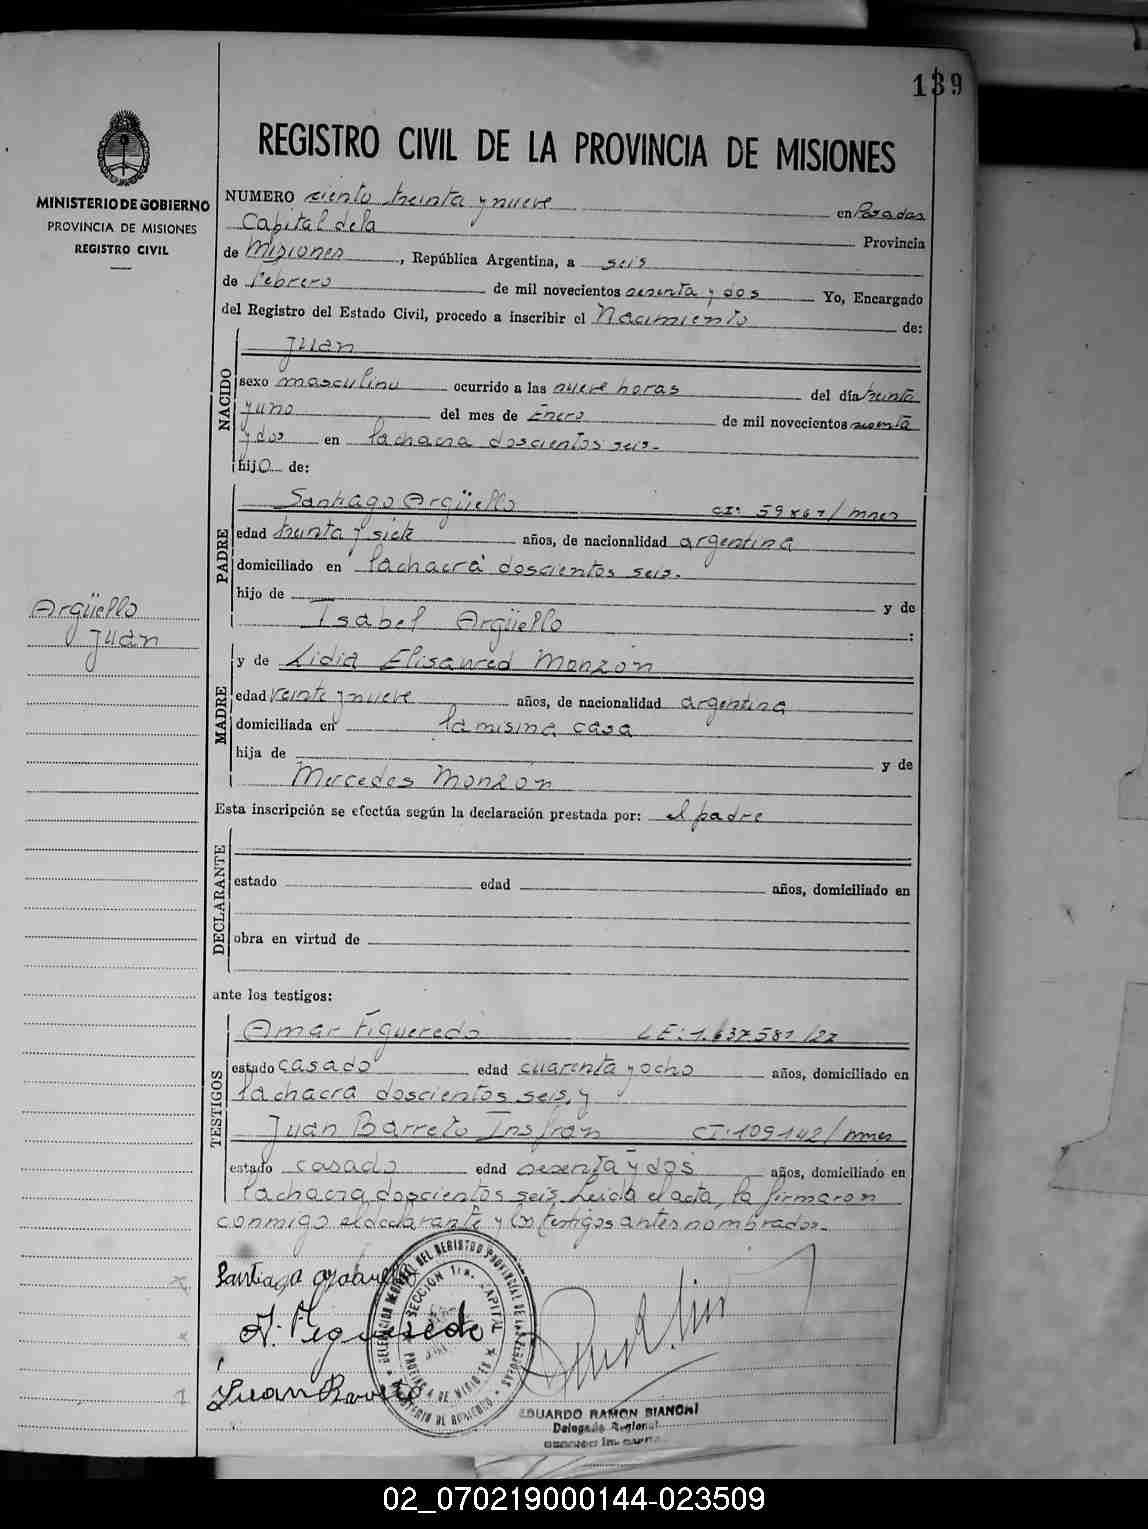 139
REGISTRO CIVIL DE LA PROVINCIA DE MISIONES
MINISTERIO DE GOBIERNO
PROVINCIA DE MISIONES
REGISTRO CIVIL
NUMERO ciento treinta y nueve en Posadas
Capital de la Provincia
de Misiones, República Argentina, a seis
de Febrero de mil novecientos sesenta y dos Yo, Encargado
del Registro del Estado Civil, procedo a inscribir el Nacimiento de:
NACIDO
Juan
sexo masculino ocurrido a las nueve horas del día treinta
y uno del mes de Enero de mil novecientos sesenta
y dos en la chacra doscientos seis.
hijo de:
PADRE
Santiago Argüello CI: 59867/mnes
edad treinta y siete años, de nacionalidad argentina
domiciliado en la chacra doscientos seis.
hijo de y de
Isabel Argüello :
Argüello
Juan
MADRE
y de Lidia Elisawed Monzón
edad veinte y nueve años, de nacionalidad argentina
domiciliada en la misma casa
hija de y de
Mercedes Monzón
Esta inscripción se efectúa según la declaración prestada por: el padre
DECLARANTE
estado edad años, domiciliado en
obra en virtud de
ante los testigos:
TESTIGOS
Amar Figueredo LE: 1.637.581/27
estado casado edad cuarenta y ocho años, domiciliado en
la chacra doscientos seis, y
Juan Barreto Insfran CI: 109142/mnes
estado casado edad sesenta y dos años, domiciliado en
la chacra doscientos seis. Leida el acta, la firmaron
conmigo el declarante y los testigos antes nombrados.
Santiago Arguello
A. Figueredo
Juan Barreto
SECCION 1ra. CAPITAL
EDUARDO RAMON BIANCHI
Delegado Regional
02_070219000144-023509